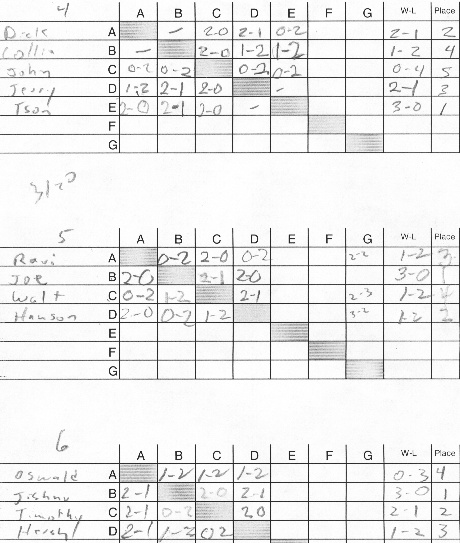 4 A B C D E F G W-L Place
Dick A - 2-0 2-1 0-2 2-1 2
Collin B - 2-0 1-2 1-2 1-2 4
John C 0-2 0-2 0-2 0-2 0-4 5
Jerry D 1-2 2-1 2-0 - 2-1 3
Tson E 2-0 2-1 2-0 - 3-0 1
F
G
5 A B C D E F G W-L Place
Ravi A 0-2 2-0 0-2 2-2 1-2
Joe B 2-0 2-1 2-0 3-0
Walt C 0-2 1-2 2-1 2-3 1-2
Hanson D 2-0 0-2 1-2 3-2 1-2 2
E
F
G
6 A B C D E F G W-L Place
Oswald A 1-2 1-2 1-2 0-3 4
Jishnu B 2-1 2-0 2-1 3-0 1
Timothy C 2-1 0-2 2 0 2-1 2
D 2-1 1-2 0 2 1-2 3